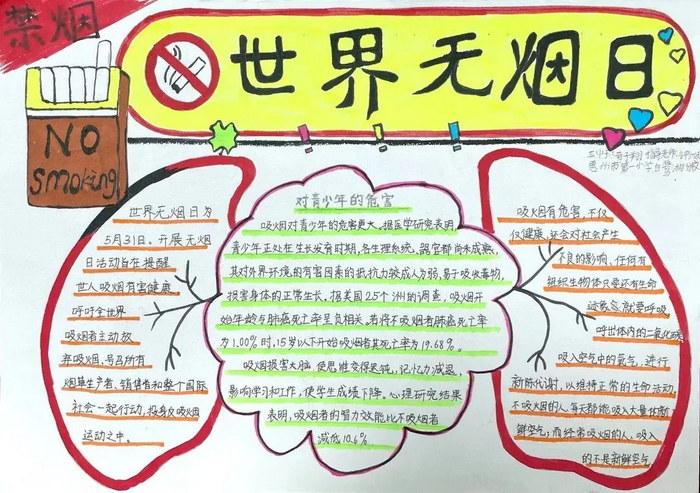 禁烟
世界无烟日
NO
smoking
世界无烟日为
5月31日。开展无烟
日活动旨在提醒
世人吸烟有害健康,
呼吁全世界
吸烟者主动放
弃吸烟,号召所有
烟草生产者、销售者和整个国际
社会一起行动,投身反吸烟
运动之中。
对青少年的危害
吸烟对青少年的危害更大。据医学研究表明,
青少年正处在生长发育时期,各生理系统、器官都尚未成熟,
其对外界环境的有害因素的抵抗力较成人为弱,易于吸收毒物,
损害身体的正常生长。据美国25个洲的调查,吸烟开
始年龄与肺癌死亡率呈负相关。若将不吸烟者肺癌死亡率
为1.00%时,15岁以下开始吸烟者其死亡率为19.68%。
吸烟损害大脑,使思维变得迟钝,记忆力减退,
影响学习和工作,使学生成绩下降。心理研究结果
表明,吸烟者的智力效能比不吸烟者
减低10.6%
吸烟有危害,不仅
仅健康,还会对社会产生
不良的影响。任何有
组织生物体只要还有生命
迹象,就要呼吸,
呼出体内的二氧化碳,
吸入空气中的氧气,进行
新陈代谢,以维持正常的生命活动。
不吸烟的人,每天都能吸入大量体新
鲜空气;而经常吸烟的人,吸入
的不是新鲜空气